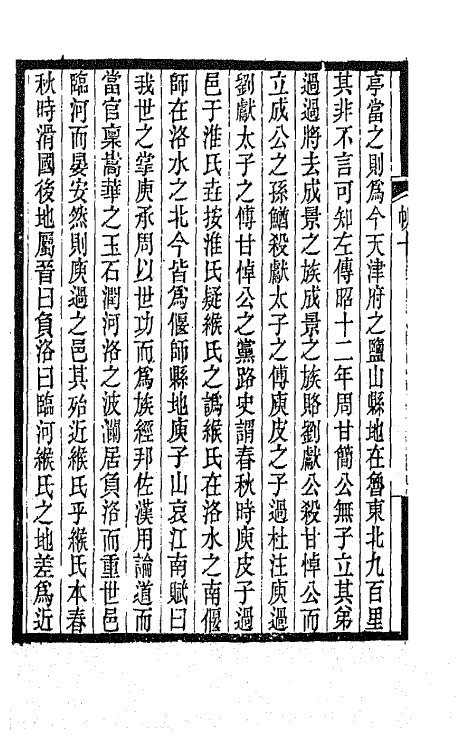 亭當之則爲今天津府之鹽山縣地在魯東北九百里
其非不言可知左傳昭十二年周甘簡公無子立其弟
過過將去成景之族成景之族賂劉獻公殺甘悼公而
立成公之孫鰌殺獻太子之傅庾皮之子過杜注庾過
劉獻太子之傅甘悼公之黨路史謂春秋時庾皮子過
邑于淮氏垚按淮氏疑緱氏之譌緱氏在洛水之南偃
師在洛水之北今皆爲偃師縣地庾子山哀江南賦曰
我世之掌庾承周以世功而爲族經邦佐漢用論道而
當官稟嵩華之玉石潤河洛之波瀾居負洛而重世邑
臨河而晏安然則庾過之邑其殆近緱氏乎緱氏本春
秋時滑國後地屬晉曰負洛曰臨河緱氏之地差爲近